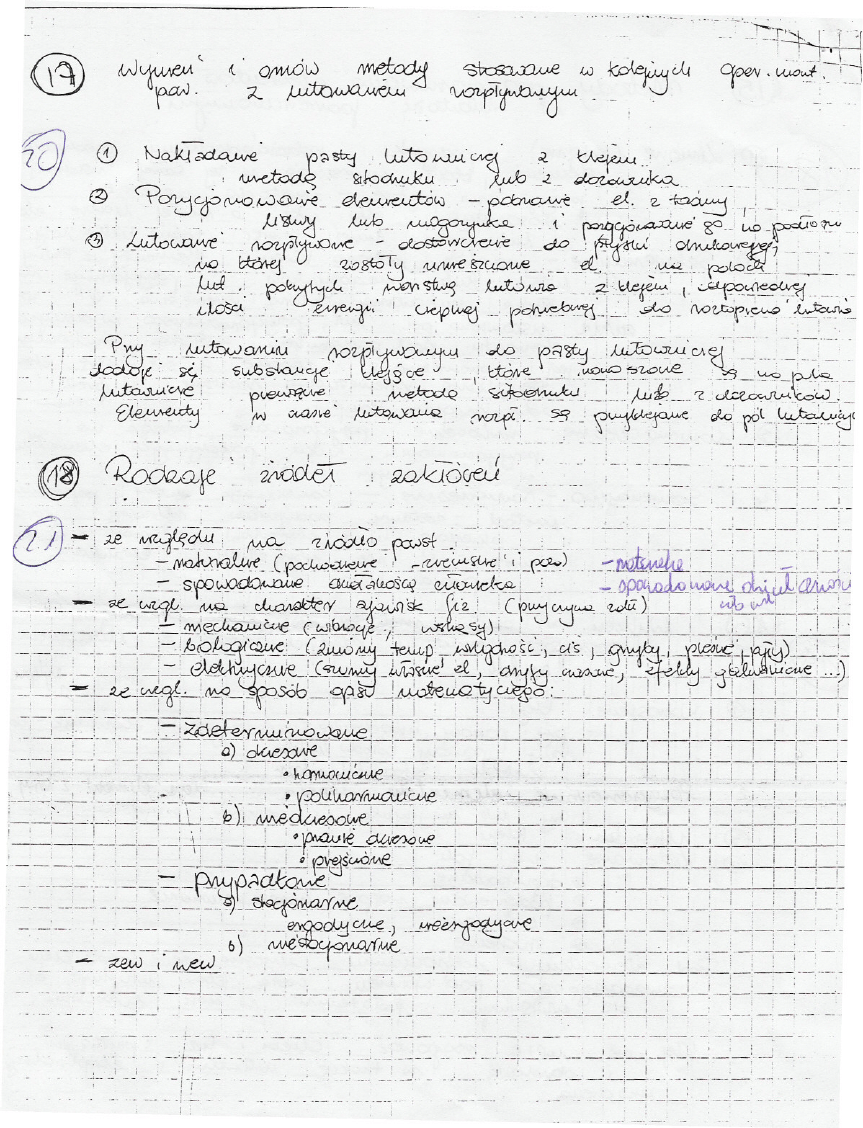 17 Wymień i omów metody stosowane w kolejnych oper. mont.
pow. z lutowaniem rozpływowym
20
① Nakładanie pasty lutowniczej z klejem
metodą sitodruku lub z dozownika
② Pozycjonowanie elementów – pobranie el. z taśmy,
listwy lub magazynka i pozycjonowanie go na podłożu
③ Lutowanie rozpływowe – dostarczenie do płytki drukowanej,
na której zostały umieszczone el. na polach
lut. pokrytych warstwą lutowia z klejem, odpowiedniej
ilości energii cieplnej potrzebnej do roztopienia lutowia
Przy lutowaniu rozpływowym do pasty lutowniczej
dodaje się substancje klejące, które nanoszone są na pola
lutownicze pierwsze metodą sitodruku lub z dozowników.
Elementy w czasie lutowania rozpł. są przyklejane do pól lutowniczych
18 Rodzaje źródeł zakłóceń
21
– ze względu na źródło powst.
– naturalne (pochodzenie – ziemskie i poza) – naturalne
– spowodowane działalnością człowieka – spowodowane dział. człowieka
– ze wzgl. na charakter zjawisk fiz (przyczyna zakł)
– mechaniczne (wibracje, wstrząsy)
– biologiczne (zmiany temp, wilgotność, ciś, grzyby, pleśnie, pyły)
– elektryczne (szumy własne el, dryfy czasowe, efekty galwaniczne ...)
– ze wzgl. na sposób opisu matematycznego:
– zdeterminowane
a) okresowe
• harmoniczne
• poliharmoniczne
b) nieokresowe
• prawie okresowe
• przejściowe
– przypadkowe
a) stacjonarne
ergodyczne, nieergodyczne
b) niestacjonarne
– zew i wew